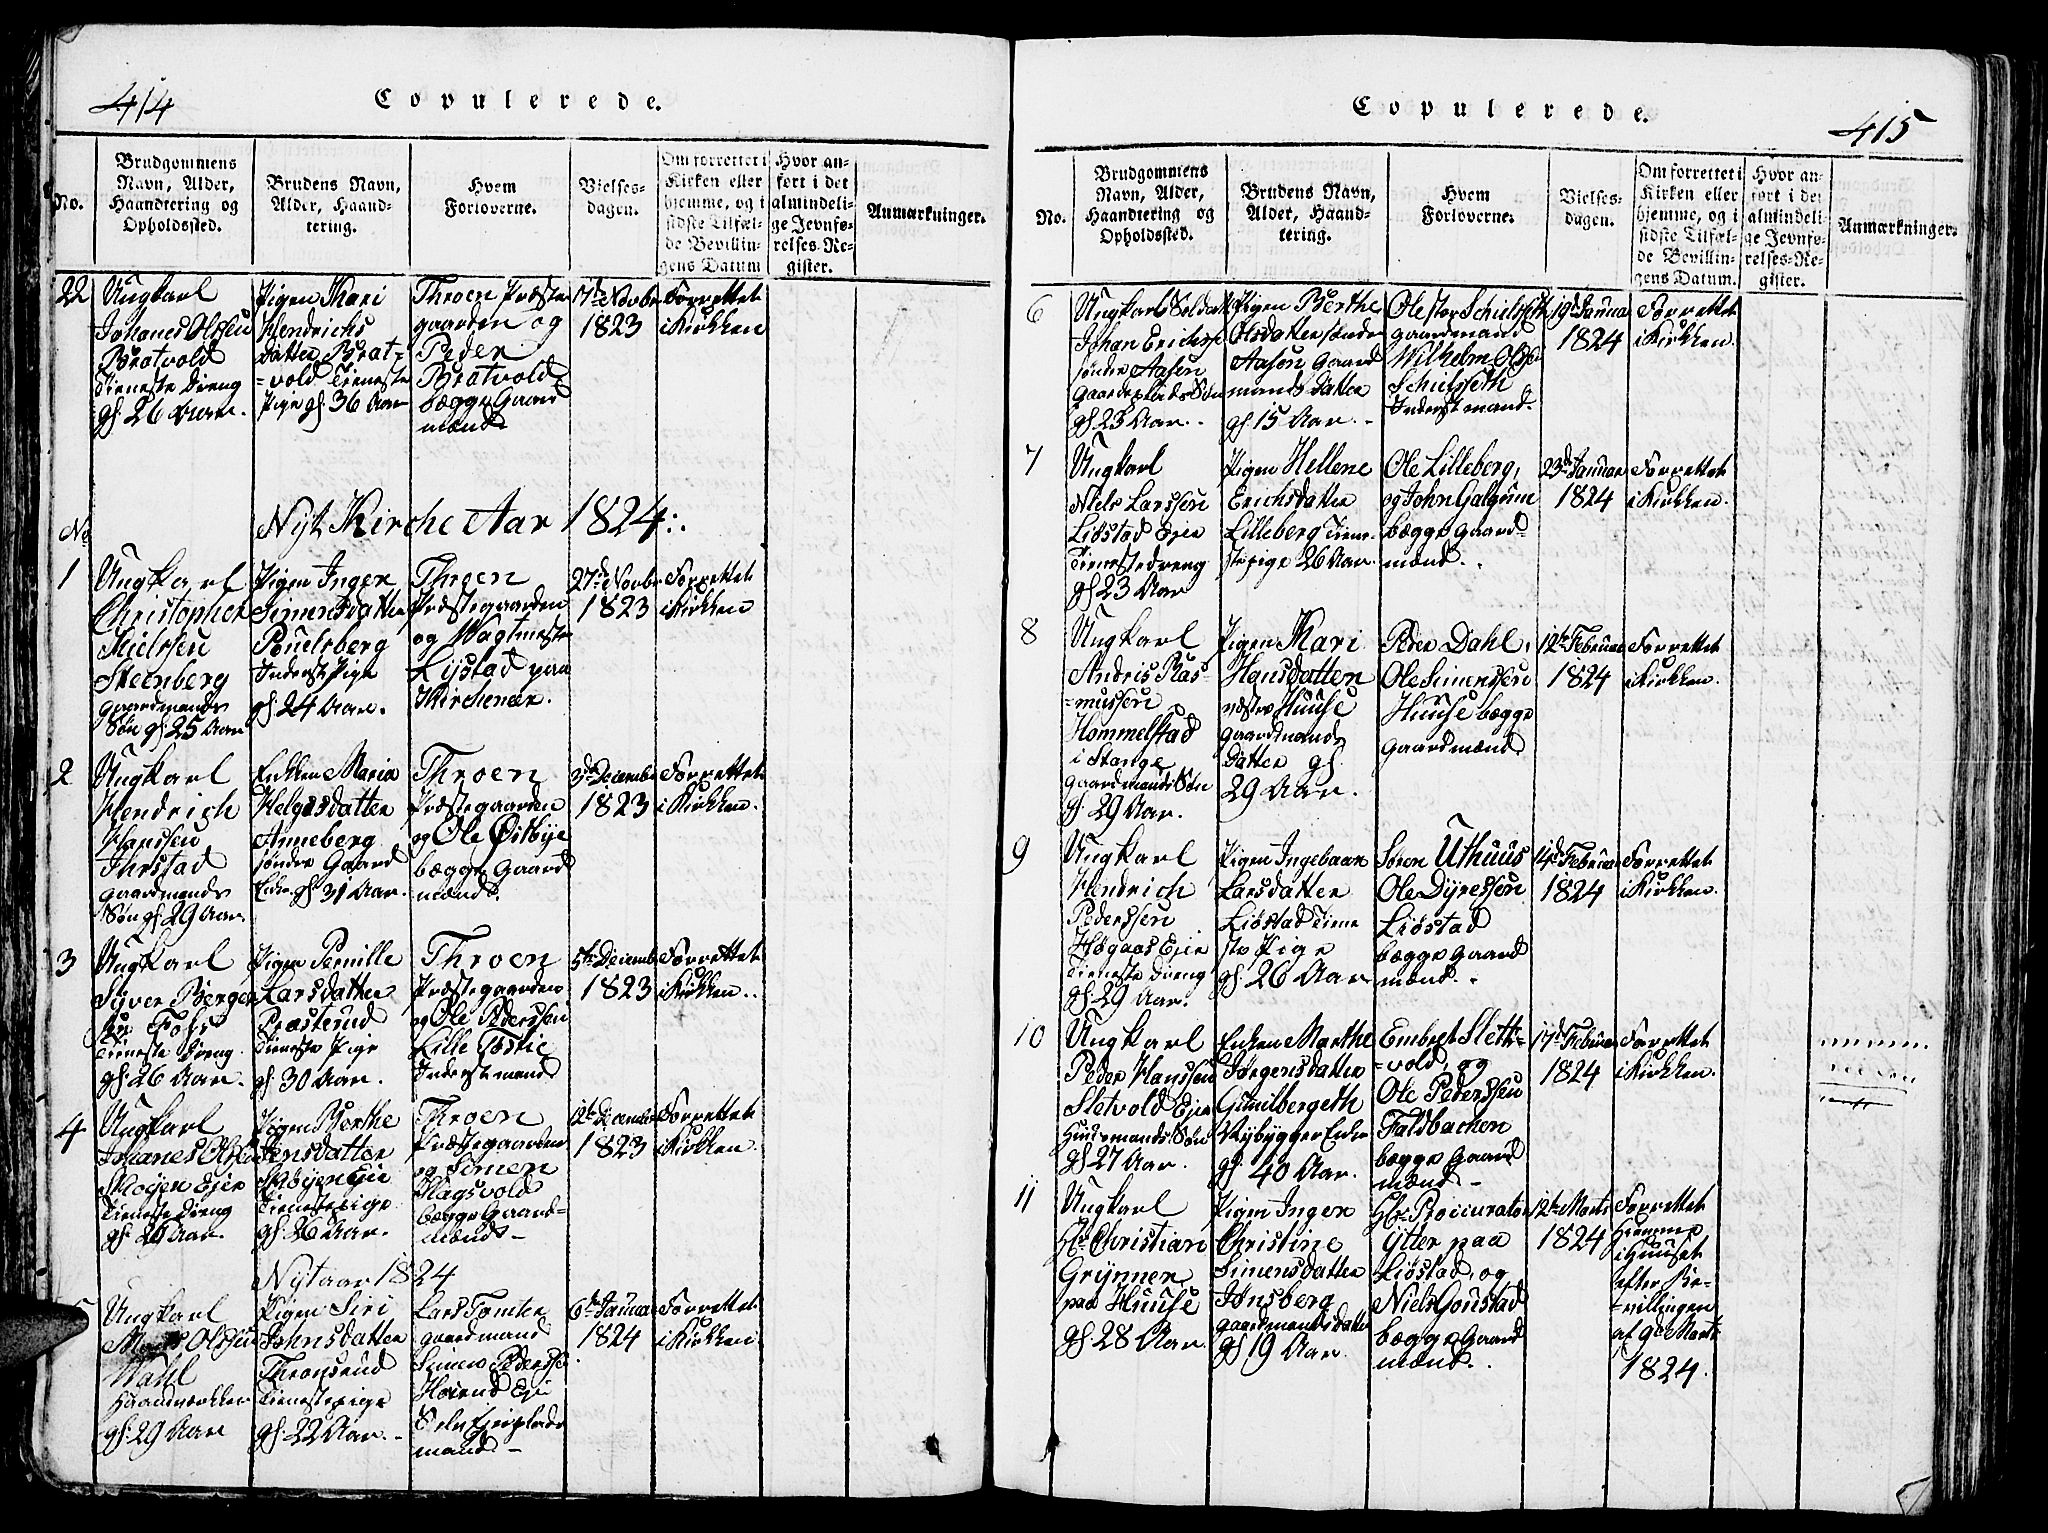 414
Copulerede.
No.
Brudgommens Navn, Alder, Haandtering og Opholdssted.
Brudens Navn, Alder, Haandtering.
Hvem Forloverne.
Vielsesdagen.
Om forrettet i Kirken eller hjemme, og i sidste Tilfælde Bevillingens Datum
Hvor anført i det almindelige Jevnførelses-Register.
Anmærkninger.
22
Ungkarl
Johanes Olssen
Bratvold
Tieneste Dreng
gl. 26 Aar.
Pigen Kari
Hendrichs
datter Brat-
=vold Tieneste
Pige gl. 36 Aar
Throen Præste
gaarden og
Peder
Bratvold
begge Gaard
mænd
17de Novbr
1823
Forrettet
i Kirkken
No
Nyt Kirche Aar 1824:.
1
Ungkarl
Christopher
Nielssen
Steenberg
gaardmands
Søn gl. 25 Aar
Pigen Inger
Simensdatter
Pouelsberg
Inderst Pige
gl. 24 Aar.
Throen
Præstegaarden
og Wagtmester
Lystad paa
Kirchenær.
27de Novbr
1823
Forrettet
i Kirkken
2
Ungkarl
Hendrich
Hanssen
Thrstad
gaardmands
Søn gl. 29 Aar
Enkken Maria
Helgesdatter
Anneberg
søndre Gaard
Enke gl. 31 Aar.
Throen
Præstegaarden
og Ole Østbye
begge Gaard
mænd.
3de Decembr
1823
Forrettet
i Kirkken.
3
Ungkarl
Syver Berger
sen Fohs
Tieneste Dreng
gl. 26 Aar.
Pigen Pernille
Larsdatter
Præsterud
Tieneste Pige
gl. 30 Aar.
Throen
Præstegaarden
og Ole Pederssen
Lille Tøstie
Inderstmænd
5te Decembr
1823
Forrettet
i Kirkken..
4
Ungkarl
Johanes Olssen
Moyen Ejer
Tieneste Dreng
gl. 29 Aar.
Pigen Berthe
Jensdatter
Møyen Eie
Tienestepige
gl. 26 Aar.
Throen
Præstegaarden
og Simen
Flagsvold
begge Gaard=
mænd -
12te Decembr
1823
Forrettet
i Kirkken.
Nytaar 1824
5
Ungkarl
Olssen
Wahl
Haandværkker
gl. 29 Aar
Pigen Siri
Johnsdatter
Thronsrud
Tienestepige
gl. 22 Aar. -
Lars Tomter
gaardmand
Simen Pederssen
Hoiend Eie
Selv Ejerplads
mand -
6te Januar
1824
Forrettet
i Kirkken
415
Copulerede.
No.
Brudgommens Navn, Alder, Haandtering og Opholdssted.
Brudens Navn, Alder, Haandtering.
Hvem Forloverne.
Vielsesdagen.
Om forrettet i Kirken eller hjemme, og i sidste Tilfælde Bevillingens Datum.
Hvor anført i det almindelige Jevnførelses-Register.
Anmærkninger.
6
Ungkarl Soldat
Johan Erichssen
søndre Aasen
Gaardeplads Søn
gl. 23 Aar..
Pigen Berthe
Olsdatter søndre
Aasen Gaard
mands datter
gl. 15 Aar. -
Ole stor Schulseth
gaardmand
Wilhelm Olssen
Schulsseth
Inderstmand.
19de Januar
1824
Forrettet
i Kirkken.
7
Ungkarl
Niels Larssen
Liøstad Ejer
Tienestedreng
gl. 23 Aar
Pigen Hellene
Erichsdatter
Lilleberg Tiene-
stepige 26 Aar.
Ole Lilleberg,
og John Galgum
begge Gaard=
mænd.
23de Januar
1824
Forrettet
i Kirkken.
8
Ungkarl
Andris Ras-
=mussen
Hommelstad
i Stange
Gaardmands Søn
gl. 29 Aar.
Pigen Kari
Hansdatter
næster Huuse
Gaardmands
Datter gl.
29 Aar.
Peder Dahl,
Ole Simenssen
Huuse begge
Gaardmænd
12te Februar
1824
Forrettet
i Kirkken.
9
Ungkarl
Hendrich
Pederssen
Høgaas Ejer
Tieneste Dreng
gl. 29 Aar.
Pigen Ingebaar
Larsdatter
Liøstad Tiene
ste Pige
gl. 26 Aar
Søren Uthuus
Ole Dyressen
Liøstad
begge Gaard
mænd..
14de Februar
1824
Forrettet
i Kirkken.
10
Ungkarl
Peder Hanssen
Sletvold Ejer
Huusmands Søn
gl. 27 Aar.
Enken Marthe
Jørgensdatter
Gunilbergeth
Nybygger Enke
gl. 40 Aar.
Embret Sleth-
=vold, og
Ole Pederssen
Faldbachen
begge Gaard
mænd -
17de Februar
1824
Forrettet
i Kirkken.
11
Ungkarl
Hr. Christian
Grynner
paa Huuse
gl. 28 Aar
Pigen Inger
Christine
Simensdatter
Jønsberg
gaardmandsdatter
gl 19 Aar.
Hr. Proccurator
Ytter paa
Liøstad, og
Niels Goustad
begge Gaard
mænd.
12te Marts
1824
Forrettet
Hiemme
i Huuset
efter Be-
=villingen
af 9de Marts
1824.